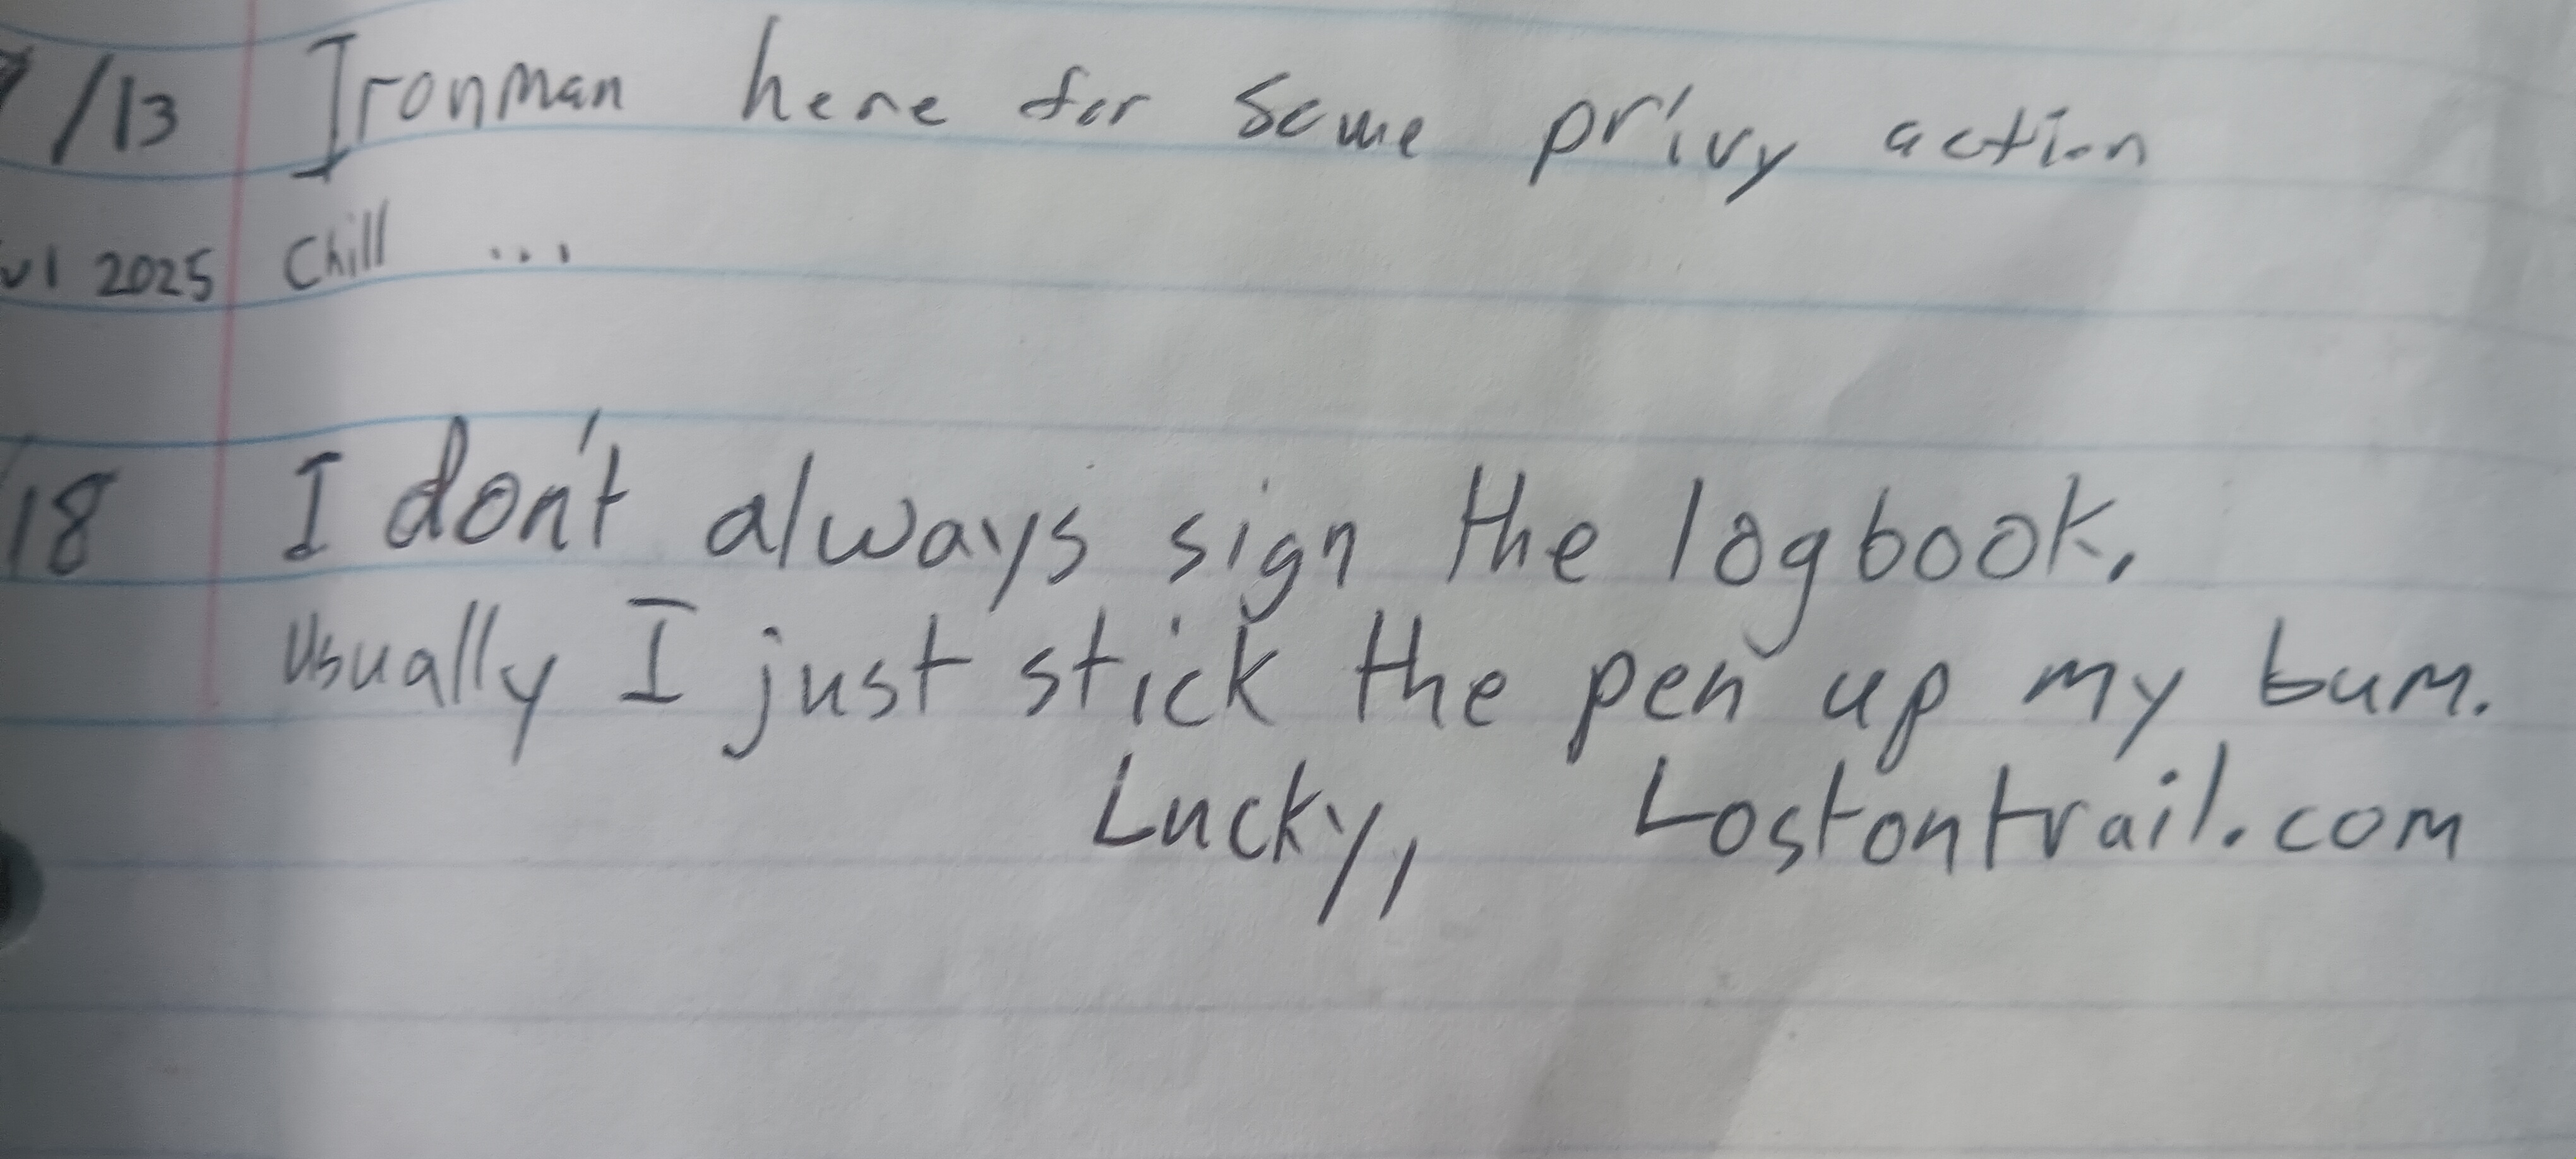 /13 Ironman here for some privy action
ul 2025 Chill ...
18 I don't always sign the logbook.
Usually I just stick the pen up my bum.
Lucky, Lostontrail.com